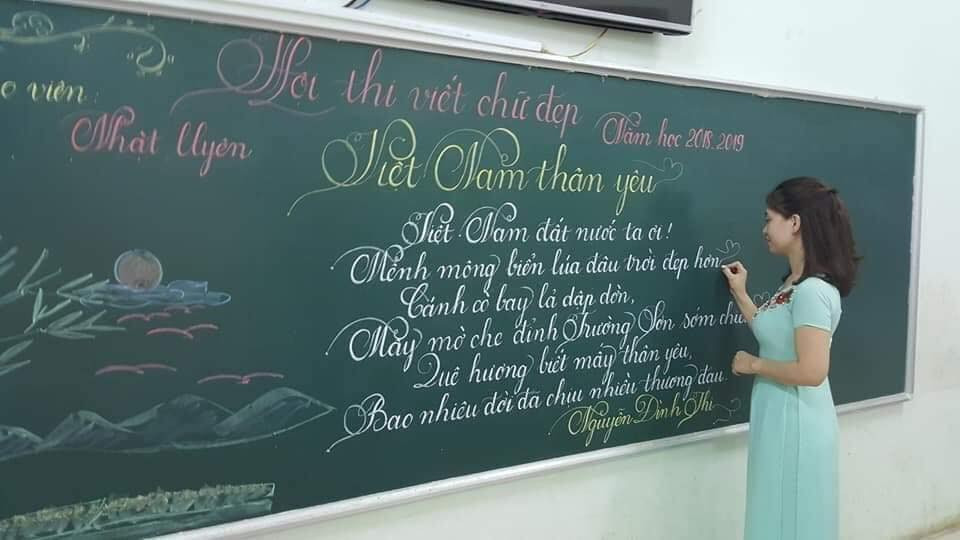 Hội thi viết chữ đẹp
o viên:
Nhật Uyên
Năm học 2018-2019
Việt Nam thân yêu
Việt Nam đất nước ta ơi!
Mênh mông biển lúa đâu trời đẹp hơn
Cánh cò bay lả dập dờn,
Mây mờ che đỉnh Trường Sơn sớm chiều.
Quê hương biết mấy thân yêu,
Bao nhiêu đời đã chịu nhiều thương đau.
Nguyễn Đình Thi